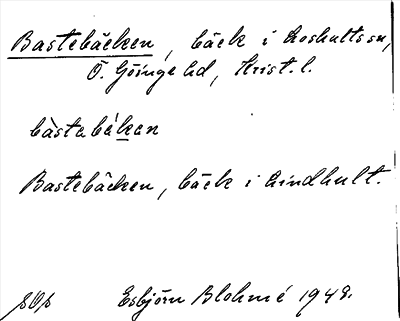 Bastebäcken, bäck i Loshults sn,
Ö. Göinge hd, Krist. l.
bàstabä́kan
Bastebäcken, bäck i Lindhult.
Esbjörn Blohmé 1948.